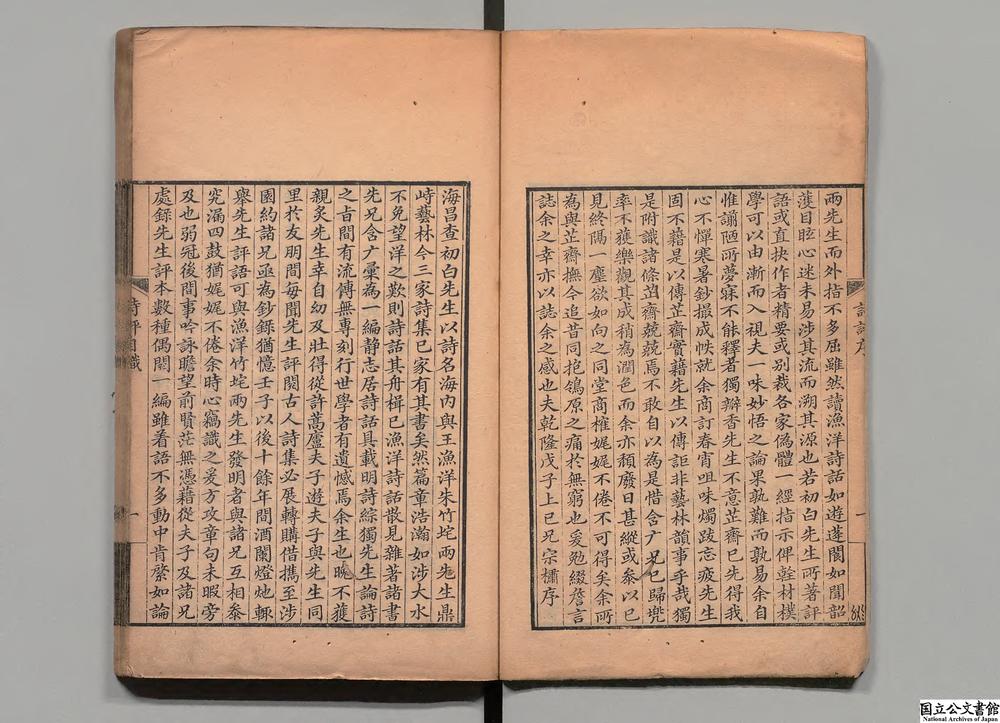 兩先生而外指不多屈雖然讀漁洋詩話如遊蓬閬如聞韶
濩目眩心迷未易涉其流而溯其源也若初白先生所著評
語或直抉作者精要或別裁各家偽體一經指示俾榦材樸
學可以由漸而入視夫一味妙悟之論果孰難而孰易余自
惟謭陋所夢寐不能釋者獨瓣香先生不意芷齋已先得我
心不憚寒暑鈔撮成帙就余商訂春宵咀味燭跋忘疲先生
固不藉是以傳芷齋實藉先生以傳詎非藝林韻事乎哉獨
是附識諸條芷齋兢兢焉不敢自以為是惜含厂兄已歸兜
率不獲樂觀其成稍為潤色而余亦頹廢日甚縱或參以己
見終隔一塵欲如向之同堂商榷娓娓不倦不可得矣余所
為與芷齋撫今追昔同抱鴒原之痛於無窮也爰勉綴詹言
誌余之幸亦以誌余之感也夫乾隆戊子上巳兄宗橚序
詩話序
一
海昌查初白先生以詩名海內與王漁洋朱竹垞兩先生鼎
峙藝林今三家詩集已家有其書矣然篇章浩瀚如涉大水
不免望洋之歎則詩話其舟楫已漁洋詩話散見雜著諸書
先兄含厂彙為一編靜志居詩話具載明詩綜獨先生論詩
之旨間有流傳無專刻行世學者有遺憾焉余生也晚不獲
親炙先生幸自幼及壯得從許蒿廬夫子遊夫子與先生同
里於友朋間每聞先生評閱古人詩集必展轉購借攜至涉
園約諸兄亟為鈔錄猶憶壬子以後十餘年間酒闌燈灺輒
舉先生評語可與漁洋竹垞兩先生發明者與諸兄互相參
究漏四鼓猶娓娓不倦余時心竊識之爰方攻章句未暇旁
及也弱冠後間事吟詠瞻望前賢茫無憑藉從夫子及諸兄
處錄先生評本數種偶閱一編雖着語不多動中肯綮如論
詩評目識
一
国立公文書館
National Archives of Japan